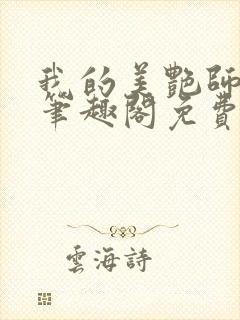 我的美艷師
筆趣閣免費
雲海詩